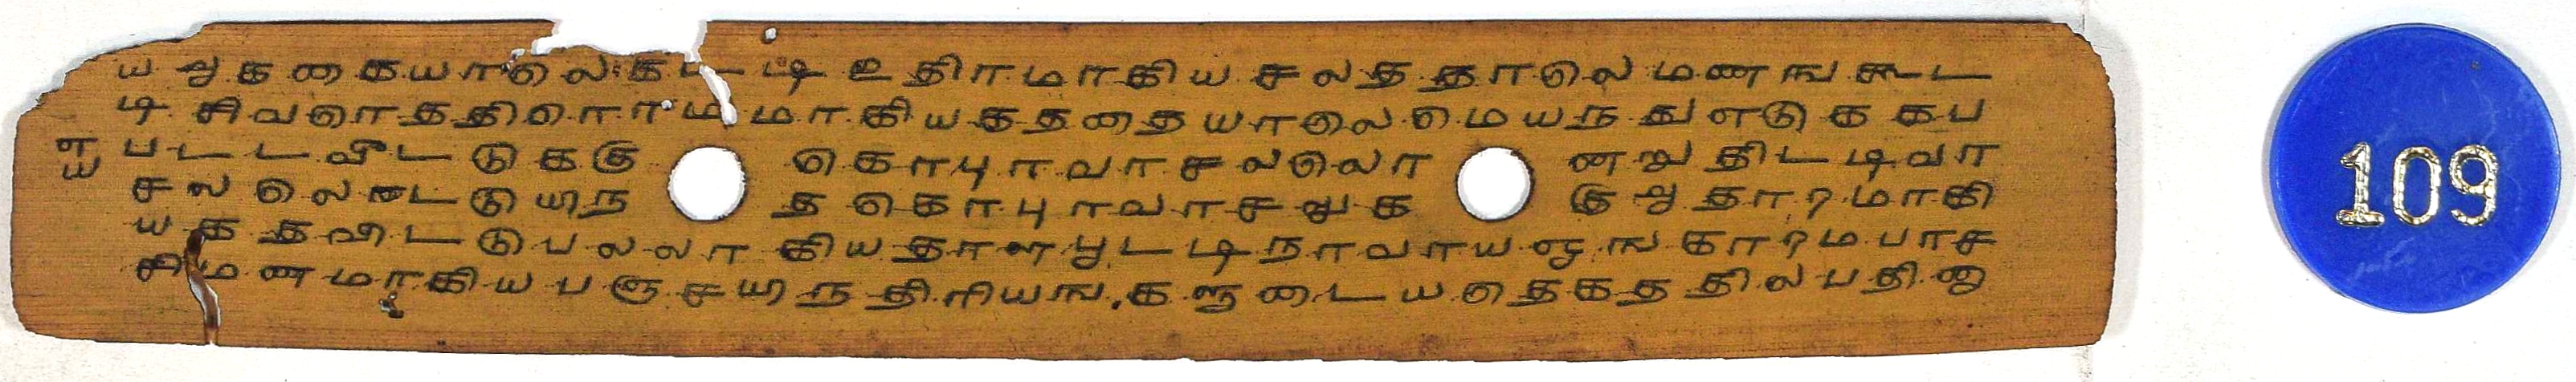 ய அதககையாலெகட்டி உதிரமாகிய சலததாலெ மணஙகூட
டி சிவரொததிரொாமமாகியகததையாலெமெயநதுஎடுககப
படடவீடடுககு கொபுரவாசலலொ னறுதிடடிவா
சலலெடடுயிந த கொபுரவாசலுக குஅதாரமாகி
யகதவிடடுபலலாகியதாளபூடடிநாவாயஓஙகாரமபாச
சிமணமாகியபஞசயிநதிரியஙகளுடையதெகததிலபதினு
109